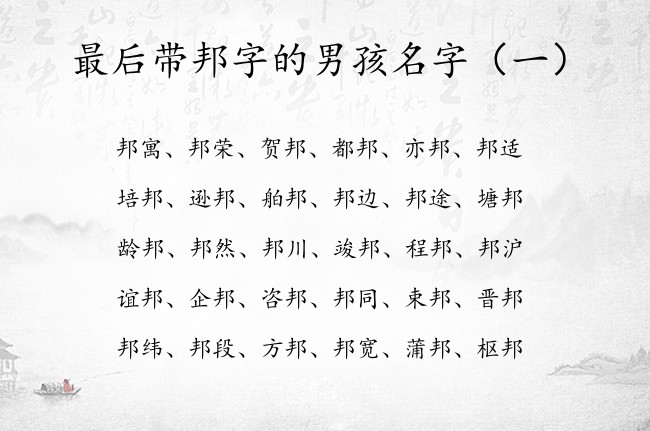 最后带邦字的男孩名字（一）
邦寓、邦荣、贺邦、都邦、亦邦、邦迋
培邦、逊邦、舶邦、邦边、邦途、塘邦
龄邦、邦然、邦川、竣邦、程邦、邦沪
谊邦、企邦、咨邦、邦同、束邦、晋邦
邦纬、邦段、方邦、邦宽、蒲邦、枢邦